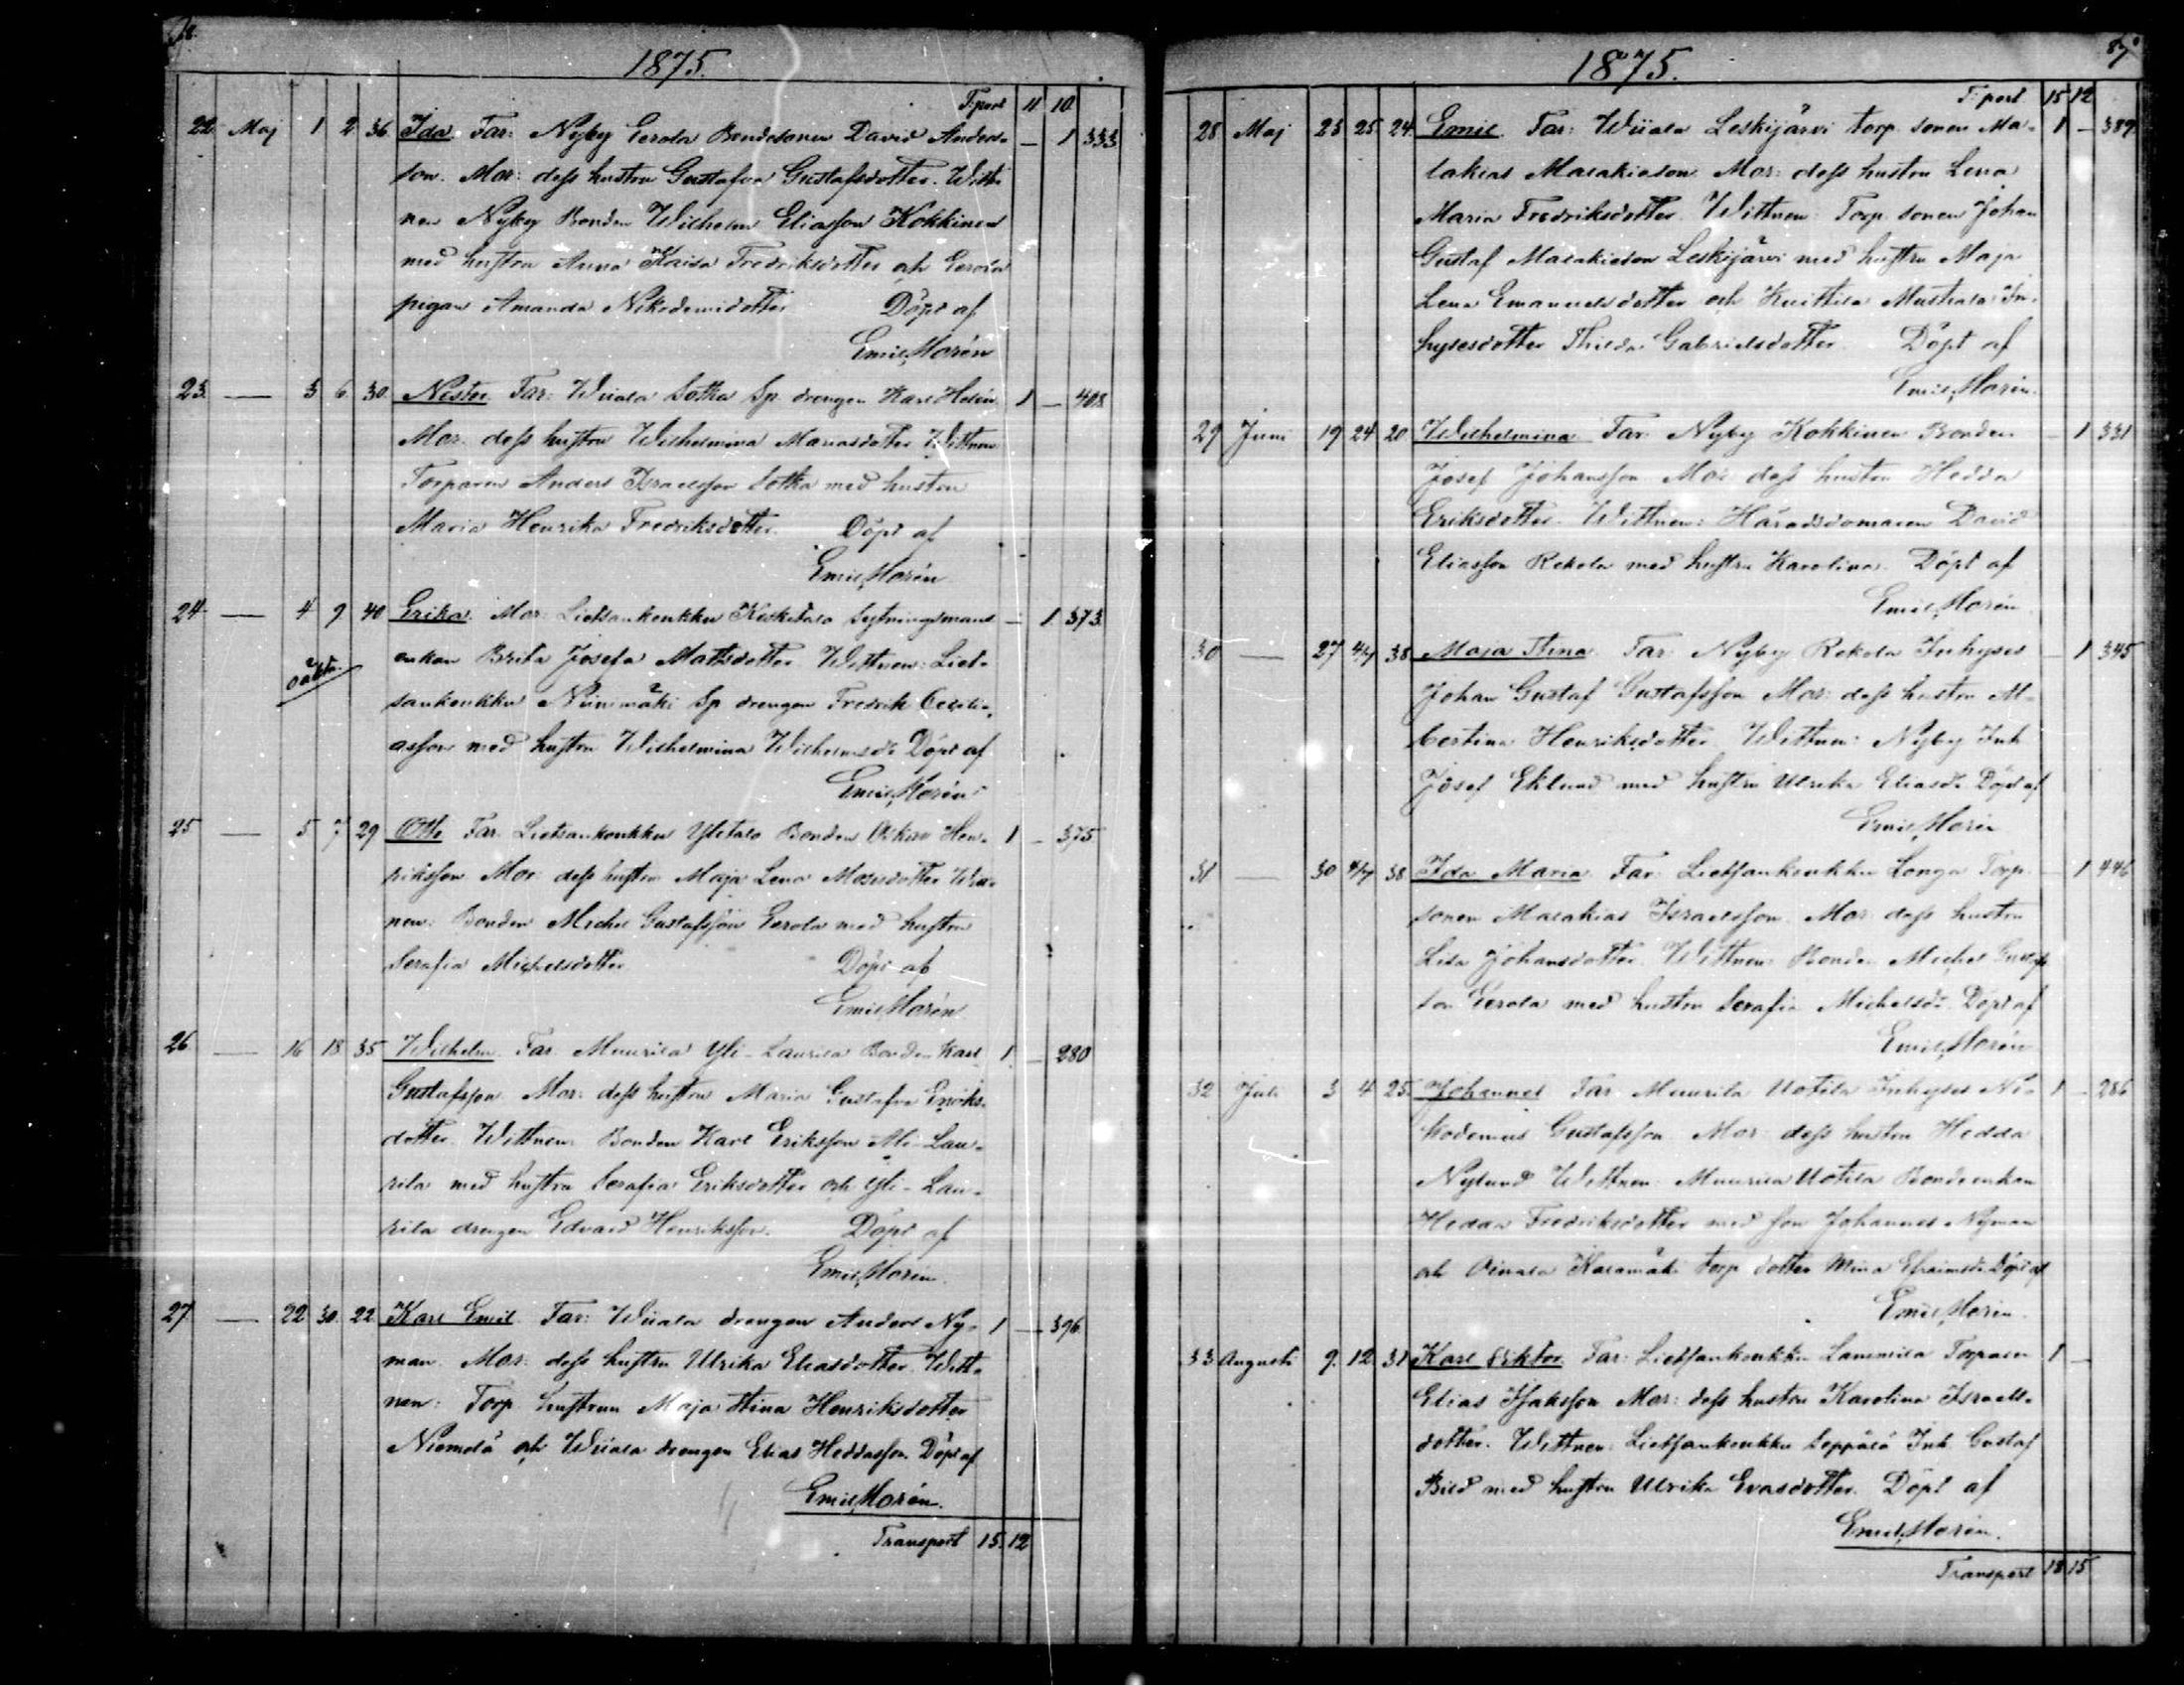 1875.
T:port 11 10
22 Maj 1 2 36 Ida. Far: Nyby Eerola Bondesonen David Anders- — 1 333
son. Mor: dess hustru Gustafva Gustafsdotter. Witt-
nen Nyby Bonden Wilhelm Eliasson Kokkinen
med hustru Anna Kaisa Fredriksdotter och Eerola
pigan Amanda Nikodemidotter Döpt af
Emil Morén
23. — 3 6 30. Nestor. Far: Wiiala Sotka Sp drengen Karl Helin 1 — 408
Mor. dess hustru Wilhelmina Mariasdotter Wittnen
Torparen Anders Israelsson Sotka med hustru
Maria Henrika Fredriksdotter. Döpt af
Emil Morén
24 — 4 7 40 Erika. Mor: Lietsankoukku Keskitalo Sytningsmans — 1. 373.
oäkta.
enkan Brita Josefa Mattsdotter Wittnen: Liet-
sankoukku Niinimäki Sp drengen Fredrik Cecili-
asson med hustru Wilhelmina Wilhelmsdr Döpt af
Emil Morén
25 — 5 7 29 Otto Far. Lietsankoukku Ylitalo Bonden Oskar Hen- 1 — 375
riksson Mor dess hustru Maja Lena Mosesdotter Witt-
nen: Bonden Michel Gustafsson Eerola med hustru
Serafia Michelsdotter Döpt af
Emil Morén
26 — 16 18 35 Wilhelm. Far Muurila Yli-Laurila Bonden Karl 1. — 280
Gustafsson. Mor: dess hustru Maria Gustafva Eriks-
dotter. Wittnen: Bonden Karl Eriksson Ali-Lau-
rila med hustru Serafia Eriksdotter och Yli-Lau-
rila drengen Edvard Henriksson. Döpt af
Emil Morén.
27 — 22 30. 22 Karl Emil. Far: Wiiala drengen Anders Ny- 1 — 396
man. Mor: dess hustru Ulrika Eliasdotter. Witt-
nen: Torp. hustrun Maja Stina Henriksdotter
Niemelä och Wiiala drengen Elias Heddasson. Döpt af
Emil Morén.
Transport 15. 12
87
1875.
T:port 15 12
28 Maj 23 25 24. Emil. Far: Wiiala Leskijärvi torp. sonen Ma- 1 — 389.
lakias Malakiason. Mor: dess hustru Lena
Maria Fredriksdotter. Wittnen: Torp. sonen Johan
Gustaf Malakiason Leskijärvi med hustru Maja
Lena Emanuelsdotter och Knittilä Mustiala In-
hysesdotter Thilda Gabrielsdotter. Döpt af
Emil Morén.
29 Juni 19 24 20 Wilhelmina Far: Nyby Kokkinen Bonden — 1 331
Josef Johansson Mor dess hustru Hedda
Eriksdotter. Wittnen: Häradsdomaren David
Eliasson Rekola med hustru Karolina. Döpt af
Emil Morén
30 — 27 4/7 38 Maja Stina. Far: Nyby Rekola Inhyses — 1 345
Johan Gustaf Gustafsson Mor: dess hustru Al-
bertina Henriksdotter. Wittnen: Nyby Inh
Josef Eklund med hustru Ulrika Eliasdr. Döpt af
Emil Morén
31 — 30 4/7 38 Ida Maria. Far: Lietsankoukku Longa Torp. — 1 446
sonen Malakias Israelsson. Mor: dess hustru
Lisa Johansdotter. Wittnen: Bonden Michel Gustafs
son Eerola med hustru Serafia Michelsdr. Döpt af
Emil Morén
32 Juli 3 4 25. Johannes Far Muurila Uotila Inhyses Ni- 1 — 286
kodemus Gustafsson. Mor dess hustru Hedda
Nylund Wittnen: Muurila Uotila Bondeenkan
Hedda Fredriksdotter med son Johannes Nyman
och Oinala Karamäki torp dotter Mina Efraimsdr. Döpt af
Emil Morén.
33 Augusti 9. 12 31 Karl Viktor. Far: Lietsankoukku Lammila Torparen 1 —
Elias Isaksson Mor: dess hustru Karolina Israels-
dotter. Wittnen: Lietsankoukku Seppälä Inh. Gustaf
Bild med hustru Ulrika Evasdotter. Döpt af
Emil Morén.
Transport 18 15